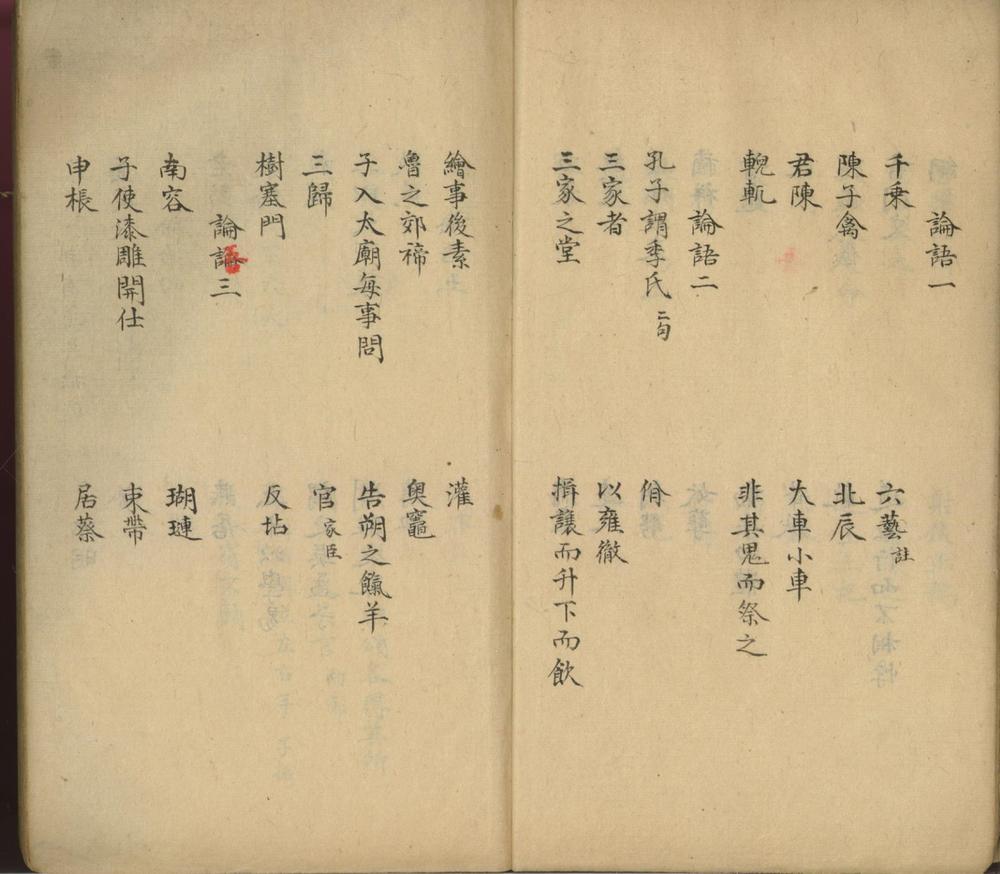 論語一
千乘 六藝註
陳子禽 北辰
君陳 大車小車
輗軏 非其鬼而祭之
論語二
孔子謂季氏二句 佾
三家者 以雍徹
三家之堂 揖讓而升下而飲
繪事後素 灌
魯之郊禘 奧竈
子入太廟每事問 告朔之餼羊
三歸 官家臣
樹塞門 反坫
論語三
南容 瑚璉
子使漆雕開仕 束帶
申棖 居蔡